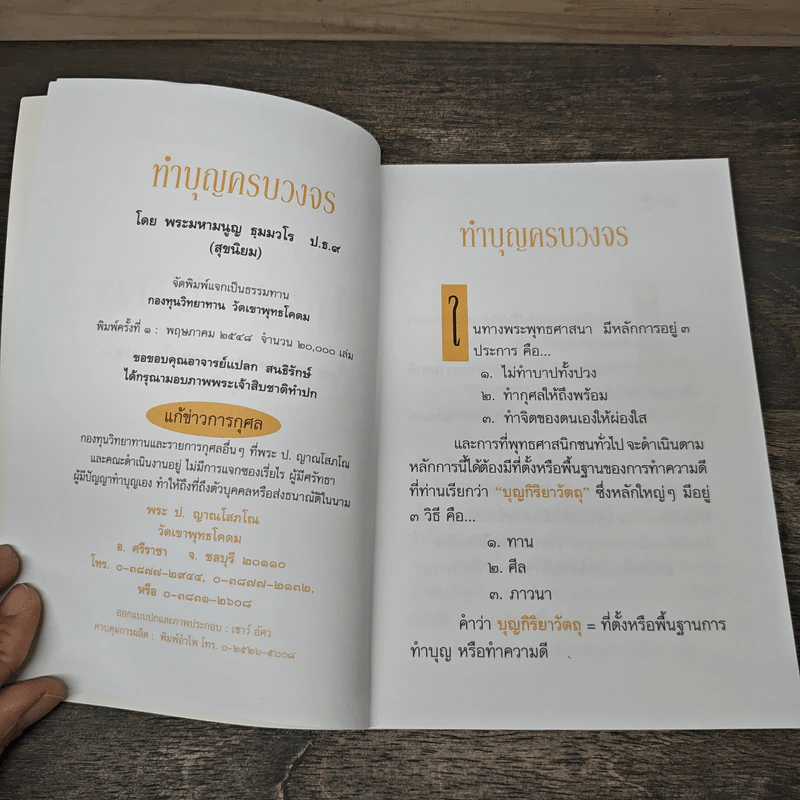 ทำบุญครบวงจร
โดย พระมหามนูญ ธฺมมวโร ป.ธ.๙
(สุขนิยม)
จัดพิมพ์แจกเป็นธรรมทาน
กองทุนวิทยาทาน วัดเขาพุทธโคดม
พิมพ์ครั้งที่ ๑ : พฤษภาคม ๒๕๔๘ จำนวน ๒๐,๐๐๐ เล่ม
ขอขอบคุณอาจารย์แปลก สนธิรักษ์
ได้กรุณามอบภาพพระเจ้าสิบชาติทำปก
แก้ข่าวการกุศล
กองทุนวิทยาทานและรายการกุศลอื่นๆ ที่พระ ป. ญาณโสภโณ
และคณะดำเนินงานอยู่ ไม่มีการแจกซองเรี่ยไร ผู้มีศรัทธา
ผู้มีปัญญาทำบุญเอง ทำให้ถึงที่ถึงตัวบุคคลหรือส่งธนาณัติในนาม
พระ ป. ญาณโสภโณ
วัดเขาพุทธโคดม
อ. ศรีราชา จ. ชลบุรี ๒๐๑๑๐
โทร. ๐-๓๘๗๗-๒๙๔๔, ๐-๓๘๗๗-๒๑๓๒,
หรือ ๐-๓๘๓๑-๒๖๐๘
ออกแบบปกและภาพประกอบ : เชาว์ อัศว
ควบคุมการผลิต : พิมพ์อำไพ โทร. ๐-๒๕๒๖-๕๐๐๘
ทำบุญครบวงจร
ในทางพระพุทธศาสนา มีหลักการอยู่ ๓
ประการ คือ...
๑. ไม่ทำบาปทั้งปวง
๒. ทำกุศลให้ถึงพร้อม
๓. ทำจิตของตนเองให้ผ่องใส
และการที่พุทธศาสนิกชนทั่วไป จะดำเนินตาม
หลักการนี้ได้ต้องมีที่ตั้งหรือพื้นฐานของการทำความดี
ที่ท่านเรียกว่า "บุญกิริยาวัตถุ" ซึ่งหลักใหญ่ๆ มีอยู่
๓ วิธี คือ...
๑. ทาน
๒. ศีล
๓. ภาวนา
คำว่า บุญกิริยาวัตถุ = ที่ตั้งหรือพื้นฐานการ
ทำบุญ หรือทำความดี